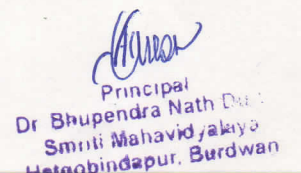 Principal
Dr Bhupendra Nath
Smriti Mahavidyalaya
Hatgobindapur, Burdwan